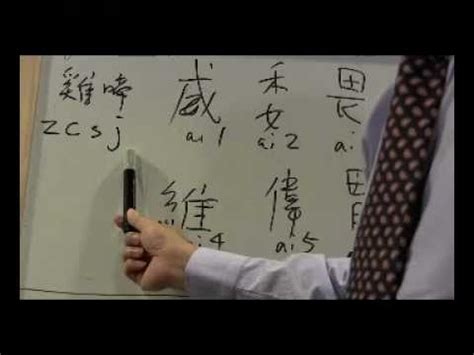 雞啼 威 委 畏
zcsj ai1 ai2 ai
維 偉
i4 ai5